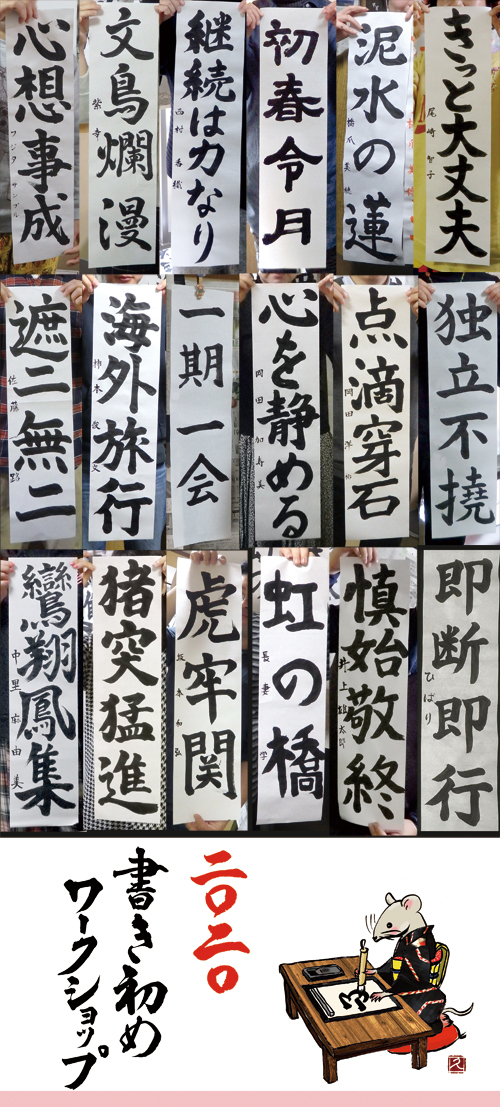 きっと大丈夫
尾崎智子
泥水の蓮
初春令月
継続は力なり
文鳥爛漫
紫幸
心想事成
独立不撓
点滴穿石
心を静める
岡田加寿美
一期一会
海外旅行
遮二無二
佐藤
即断即行
ひばり
慎始敬終
井上
虹の橋
長妻学
虎牢関
坂本和弘
猪突猛進
鸞翔鳳集
中里麻由美
二〇二〇
書き初め
ワークショップ